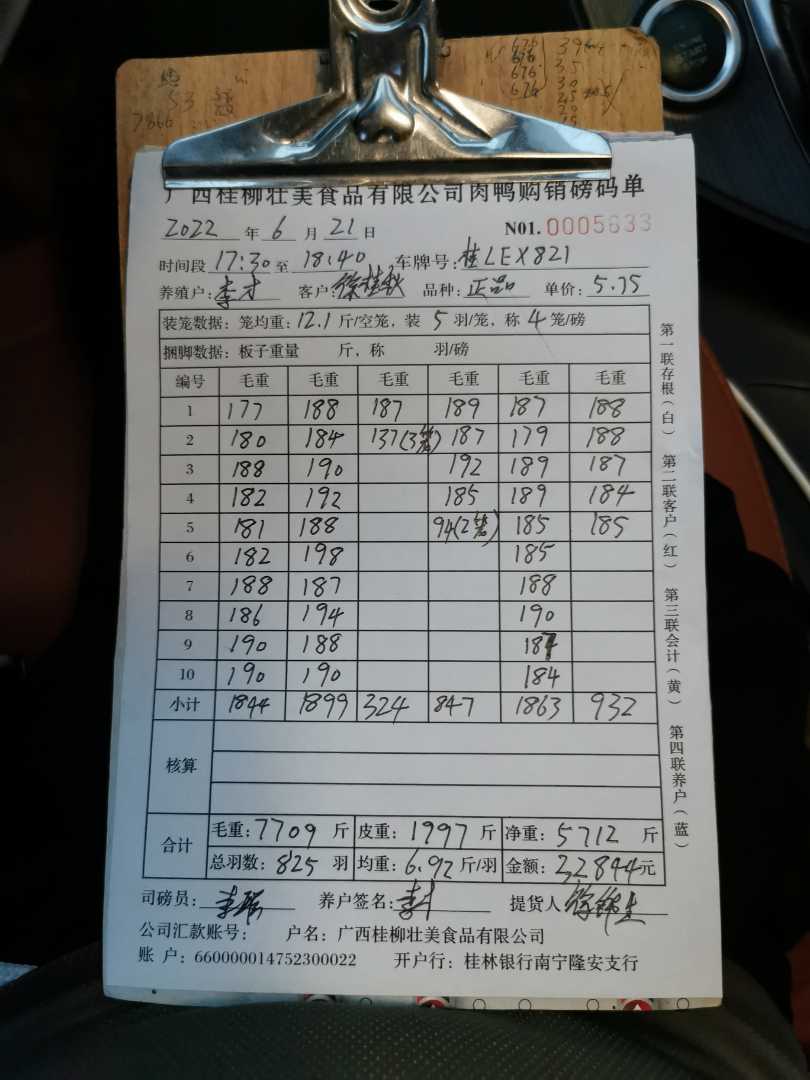 676 3964
676 35
676 30
676 25
53
7866
广西桂柳壮美食品有限公司肉鸭购销磅码单
2022 年 6 月 21 日 N01. 0005633
时间段 17:30 至 18:40 车牌号: 桂LEX821
养殖户: 李才 客户: 徐桂秋 品种: 正品 单价: 5.75
装笼数据: 笼均重: 12.1 斤/空笼, 装 5 羽/笼, 称 4 笼/磅
捆脚数据: 板子重量 斤, 称 羽/磅
编号 毛重 毛重 毛重 毛重 毛重 毛重
1 177 188 187 189 187 188
2 180 184 137(3笼) 187 179 188
3 188 190 192 189 187
4 182 192 185 189 184
5 181 188 94(2笼) 185 185
6 182 198 185
7 188 187 188
8 186 194 190
9 190 188 187
10 190 190 184
小计 1844 1899 324 847 1863 932
核算
合计 毛重: 7709 斤 皮重: 1997 斤 净重: 5712 斤
总羽数: 825 羽 均重: 6.92 斤/羽 金额: 32844元
司磅员: 养户签名: 李才 提货人
公司汇款账号: 户名: 广西桂柳壮美食品有限公司
账 户: 660000014752300022 开户行: 桂林银行南宁隆安支行
第一联存根(白) 第二联客户(红) 第三联会计(黄) 第四联养户(蓝)